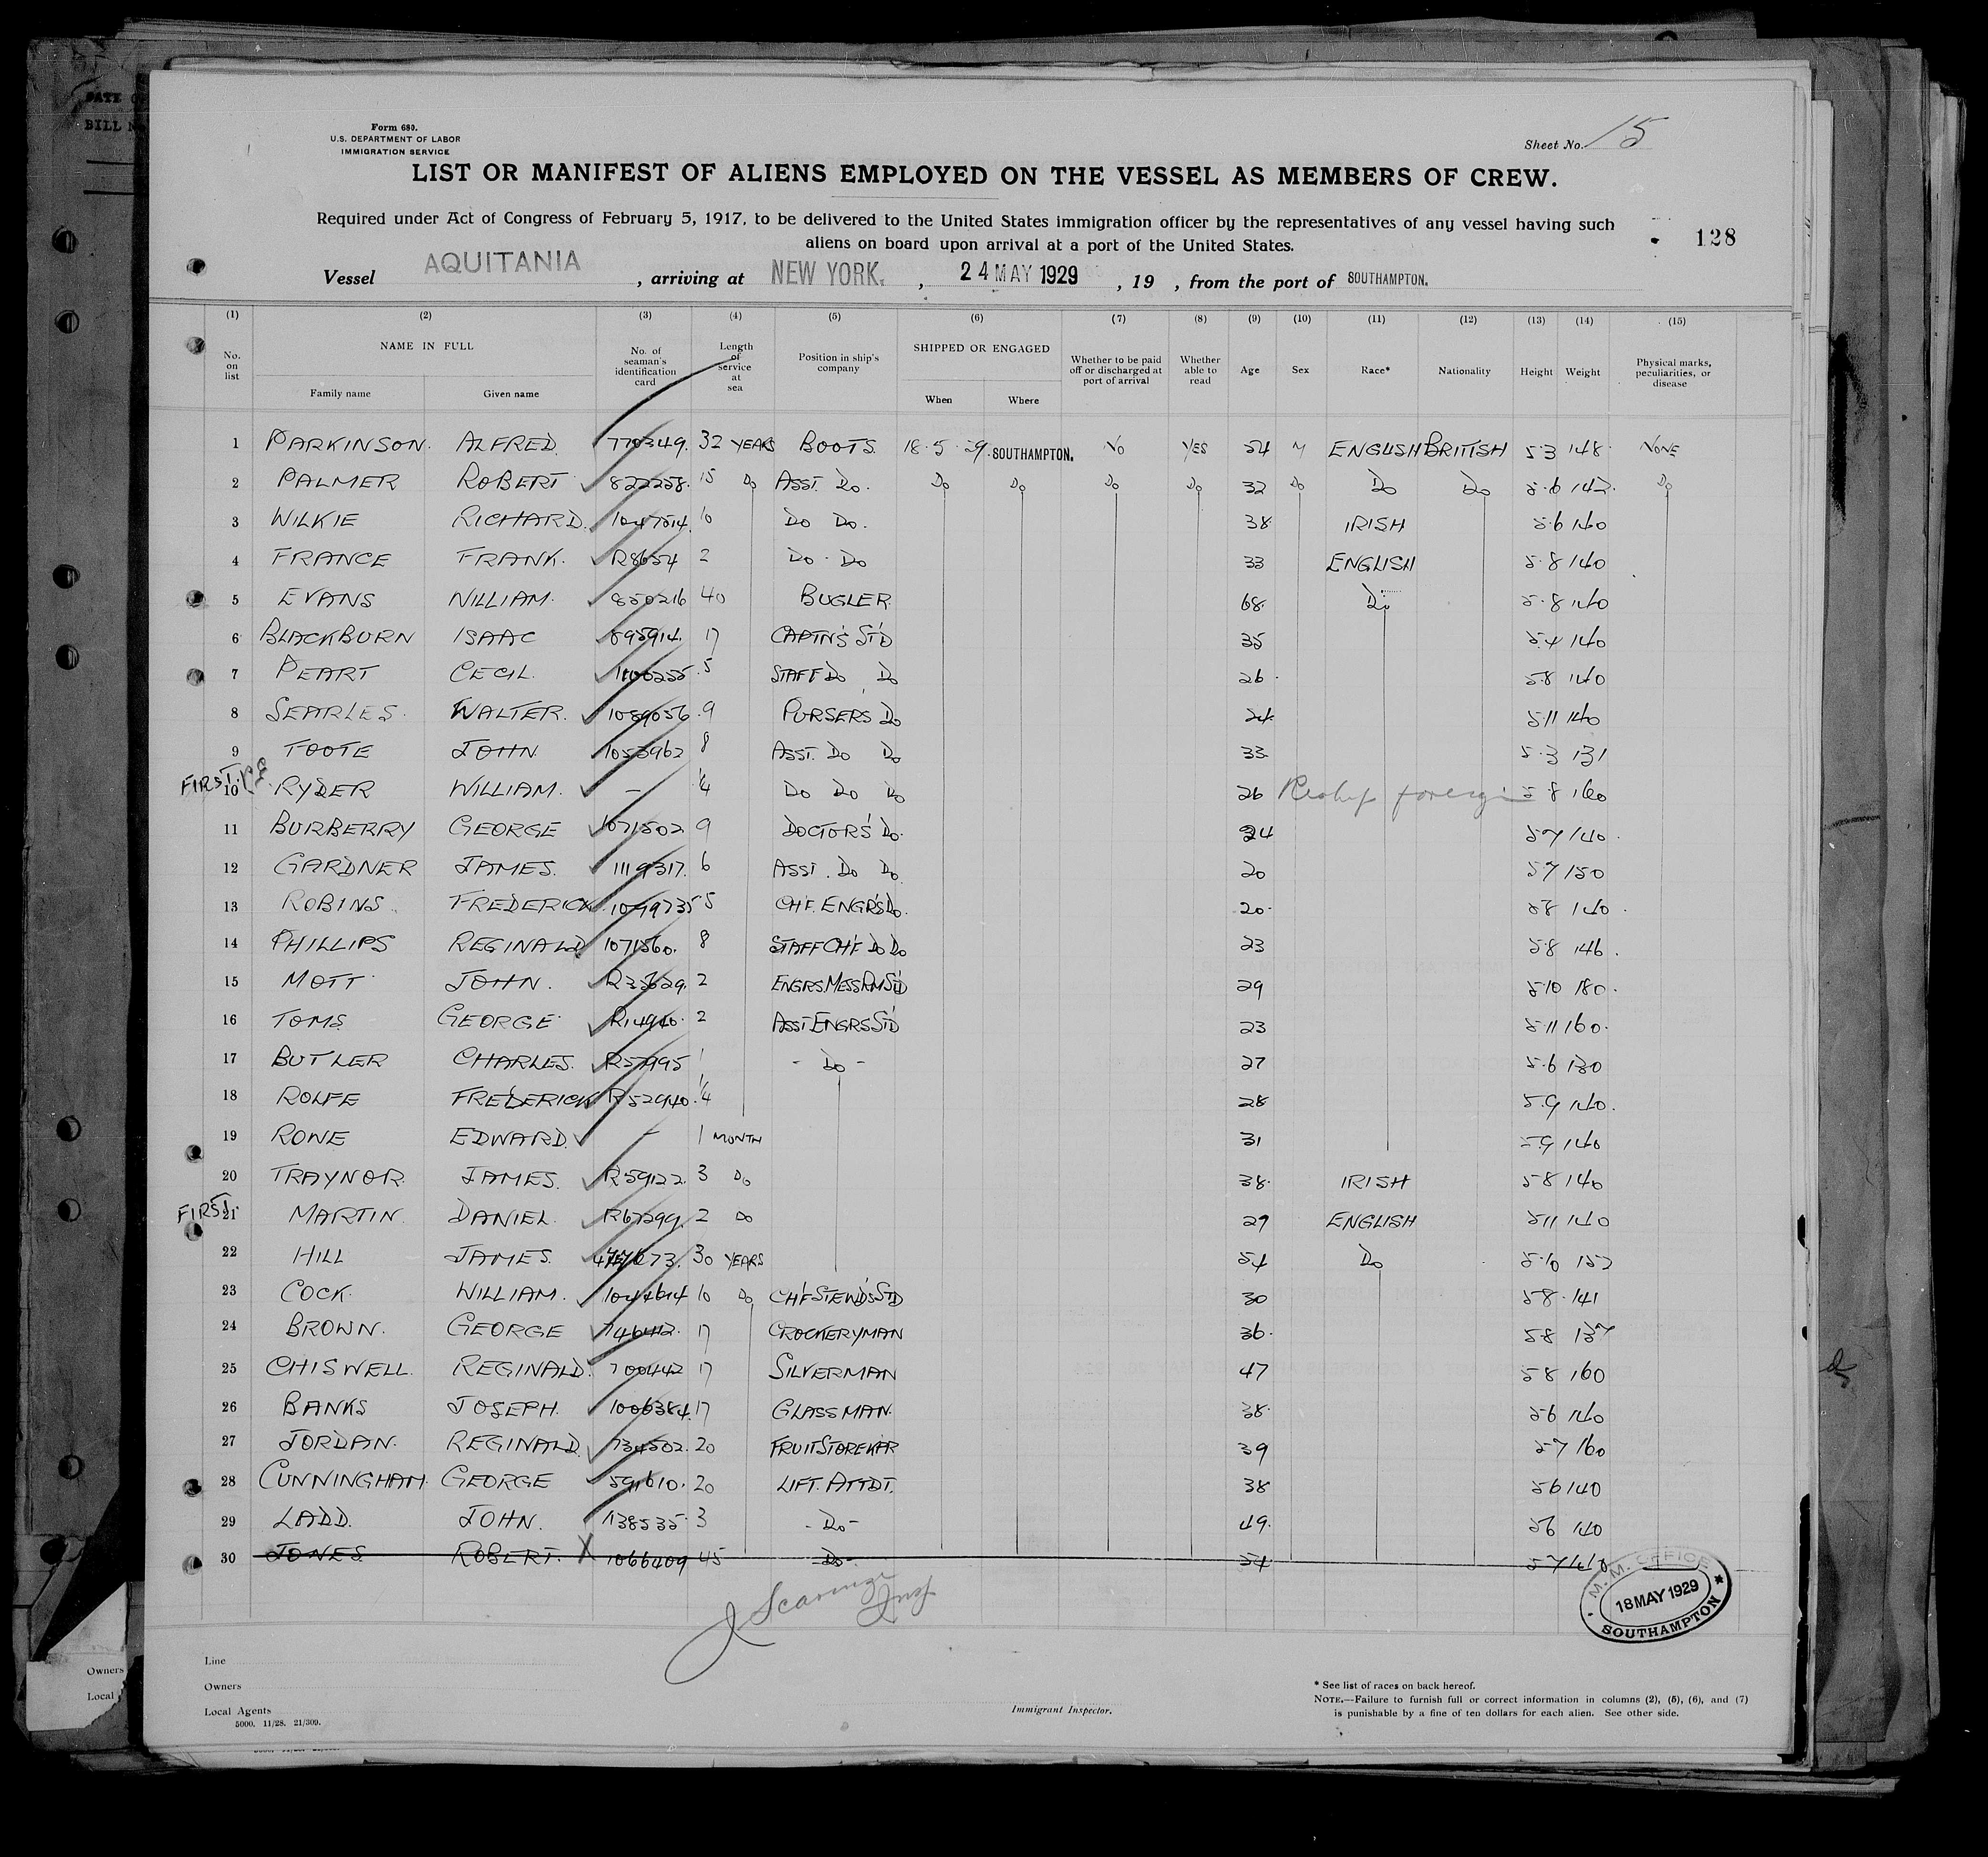 Form 680.
U.S. DEPARTMENT OF LABOR
IMMIGRATION SERVICE
Sheet No. 15
LIST OR MANIFEST OF ALIENS EMPLOYED ON THE VESSEL AS MEMBERS OF CREW.
Required under Act of Congress of February 5, 1917, to be delivered to the United States immigration officer by the representatives of any vessel having such
aliens on board upon arrival at a port of the United States.
128
Vessel AQUITANIA , arriving at NEW YORK. , 24 MAY 1929 , 19 , from the port of SOUTHAMPTON.
(1) (2) (3) (4) (5) (6) (7) (8) (9) (10) (11) (12) (13) (14) (15)
No. on list NAME IN FULL Family name Given name No. of seaman's identification card Length of service at sea Position in ship's company SHIPPED OR ENGAGED When Where Whether to be paid off or discharged at port of arrival Whether able to read Age Sex Race* Nationality Height Weight Physical marks, peculiarities, or disease
1 PARKINSON. ALFRED. 770349. 32 YEARS BOOTS. 18.5.29. SOUTHAMPTON. NO YES 54 M ENGLISH BRITISH 5.3 148. NONE
2 PALMER ROBERT 822258. 15 DO ASST. DO. DO DO DO DO 32 DO DO DO 5.6 142. DO
3 WILKIE RICHARD. 1047514. 10 DO DO. 38. IRISH 5.6 140
4 FRANCE FRANK. R8654 2 DO. DO 33 ENGLISH 5.8 140
5 EVANS WILLIAM. 850216 40 BUGLER. 68. DO 5.8 140
6 BLACKBURN ISAAC 895914. 17 CAPTN'S ST'D 35 5.4 140
7 PEART CECIL. 1100255. 5 STAFF DO DO 26. 5.8 140
8 SEARLES. WALTER. 1089056. 9 PURSERS DO 24 5.11 140
9 TOOTE JOHN 1053962 8 ASST. DO DO 33 5.3 131
FIRST. 10 RYDER WILLIAM. - 1/4 DO DO DO 26 5 8 160
11 BURBERRY GEORGE 1071502. 9 DOCTOR'S DO. 24 5.7 140.
12 GARDNER JAMES. 1119317. 6 ASST. DO DO. 20 5.7 150
13 ROBINS. FREDERICK. 1099735 5 CHF. ENGR'S DO. 20. 5.8 140.
14 PHILLIPS REGINALD 1071560. 8 STAFF CH'F. DO DO 23 5.8 146.
15 MOTT JOHN. R33629. 2 ENGRS MESS RM ST'D 29 5.10 180.
16 TOMS GEORGE R14940. 2 ASST ENGRS ST'D 23 5.11 160.
17 BUTLER CHARLES. R57995 1 - DO - 27 5.6 130
18 ROLFE FREDERICK R52940. 1/4 28 5.9 140.
19 ROWE EDWARD. - 1 MONTH 31 5.9 140
20 TRAYNOR. JAMES. R59122. 3 DO 38. IRISH 5.8 140
FIRST. 21 MARTIN. DANIEL. R67299. 2 DO 29 ENGLISH 5.11 140
22 HILL JAMES. 30 YEARS 54 DO 5.10
23 COCK. WILLIAM. 1044614 10 DO CH'F STEWD'S ST'D 30 5.8. 141
24 BROWN. GEORGE 746412. 17 CROCKERYMAN 36. 5.8 137
25 CHISWELL. REGINALD. 700442 17 SILVERMAN 47 5.8 160
26 BANKS JOSEPH. 1006384. 17 GLASSMAN. 38. 5.6 140
27 JORDAN. REGINALD. 734502. 20 FRUIT STOREKPR 39 5.7 160
28 CUNNINGHAM. GEORGE 591610. 20 LIFT. ATTDT. 38 5.6 140
29 LADD. JOHN. 1138535. 3 - DO - 49. 5.6 140
30 JONES ROBERT. X 1066409 45 - DO - 54 5.7 140
M. M. OFFICE
18 MAY 1929
SOUTHAMPTON
Line
Owners
Local Agents
5000. 11/28. 21/309.
Immigrant Inspector.
* See list of races on back hereof.
NOTE.—Failure to furnish full or correct information in columns (2), (5), (6), and (7)
is punishable by a fine of ten dollars for each alien. See other side.
Owners
Local